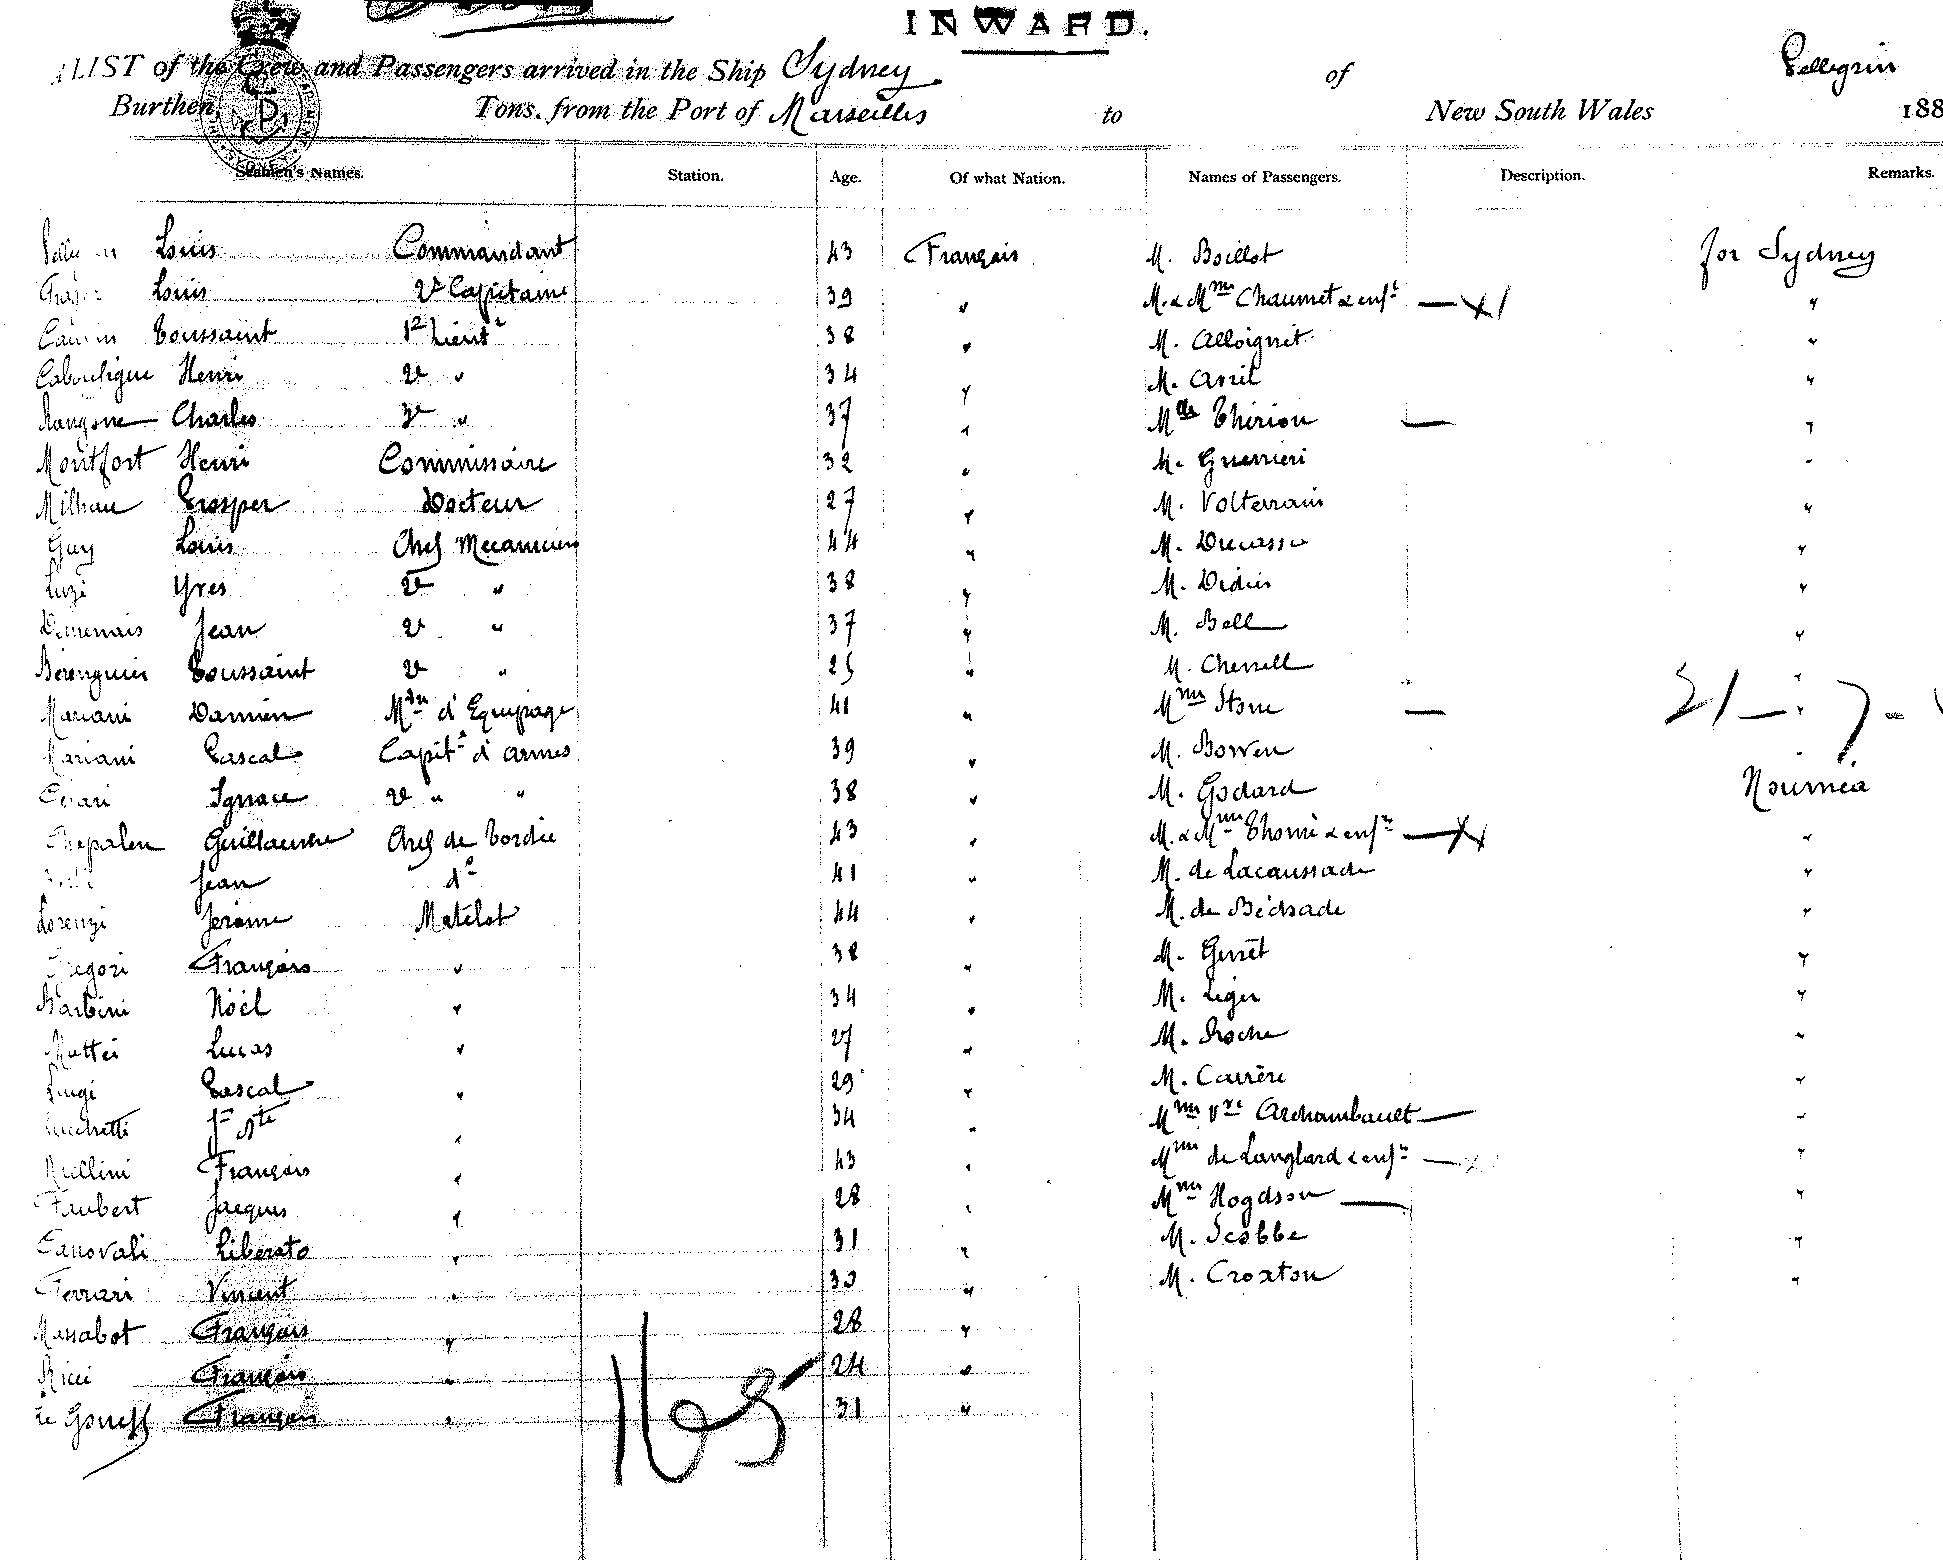 INWARD.
LIST of the Crew and Passengers arrived in the Ship Sydney of Pellegrin
Burthen, Tons, from the Port of Marseilles to New South Wales 188
Seamen's Names. Station. Age. Of what Nation. Names of Passengers. Description. Remarks.
Louis Commandant 43 Français M. Boillot for Sydney
Louis 2e Capitaine 39 " M. & Mme Chaumet & enft — X 1 "
Toussaint 1er Lieutt 38 " M. Alloignet "
Henri 2e " 34 " M. Avril "
Mangone Charles 3e " 37 " Mlle Thérion — "
Montfort Henri Commissaire 32 " M. Guerrieri "
Milhau Prosper Docteur 27 " M. Volterrain "
Guy Louis Chef Mecanicien 44 " M. Ducasse "
Luzi Yves 2e " 38 " M. "
Jean 2e " 37 " M. Bell "
Berenguier Toussaint 2e " 25 " M. Cherrell "
Mariani Damien Mtre d'Equipage 41 " Mme Stone — " 21 —
Mariani Pascal Capitne d'armes 39 " M. Bowen "
Ignace 2e " " 38 " M. Godard Nouméa
Chepalen Guillaume Chef de bordée 43 " M. & Mme Thomé & enfts — "
Jean do 41 " M. de Lacaussade "
Lorenzi Jérôme Matelot 44 " M. de Bédsade "
Gregori François " 38 " M. "
Barbini Noël " 34 " M. Léger "
Mattei Lucas " 27 " M. Roche "
Luigi Pascal " 29 " M. Carrère "
Jn Bte " 34 " Mme Vve Archambault — "
Mellini François " 43 " Mme de Langlard & enfts — "
Faubert Jacques " 28 " Mme Hogdson — "
Canovali Liberato " 31 " M. Scobbe "
Ferrari Vincent " 30 " M. Croxton "
Massabot François " 28 "
Ricci François " 24 "
Le Goueff François " 31 "
165